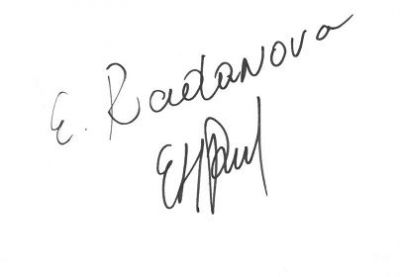 E. Radanova